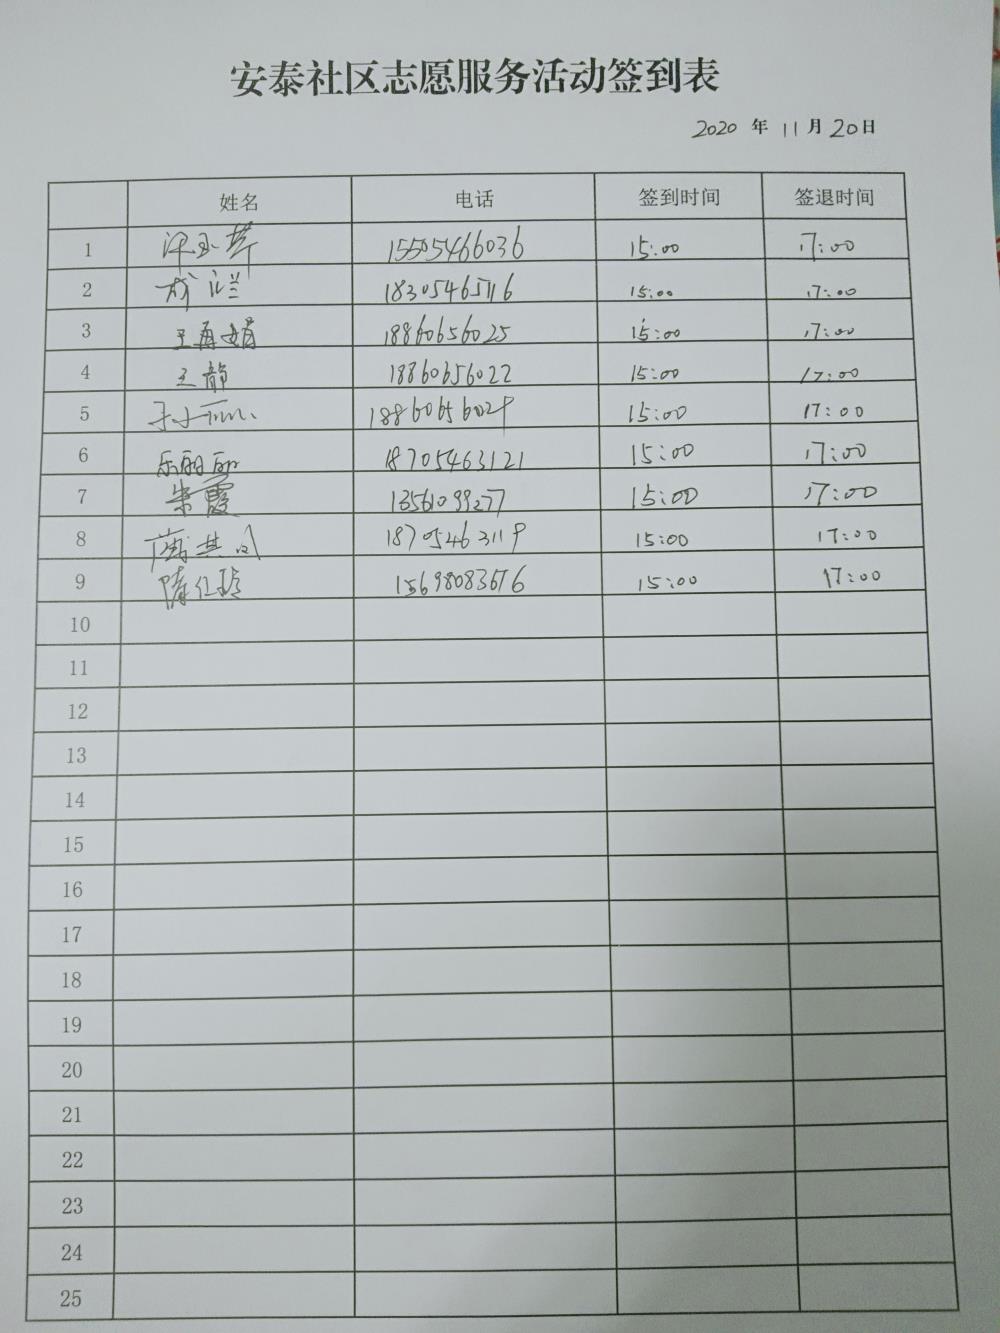 安泰社区志愿服务活动签到表
2020 年 11 月 20 日
姓名 电话 签到时间 签退时间
1 15505466036 15:00 17:00
2 成兰 18305465116 15:00 17:00
3 王再娟 18860656025 15:00 17:00
4 王静 18860656022 15:00 17:00
5 18860656029 15:00 17:00
6 乐丽丽 18705463121 15:00 17:00
7 朱霞 13561099277 15:00 17:00
8 18705463119 15:00 17:00
9 隋仁玲 15698083676 15:00 17:00
10
11
12
13
14
15
16
17
18
19
20
21
22
23
24
25